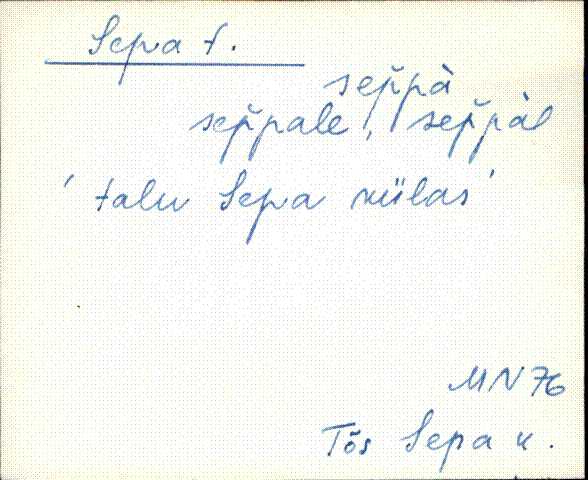 Sepa t.
sep̆pà
sep̆pale, sep̆pàl
' talu Sepa külas '
MN 76
Tõs Sepa k.